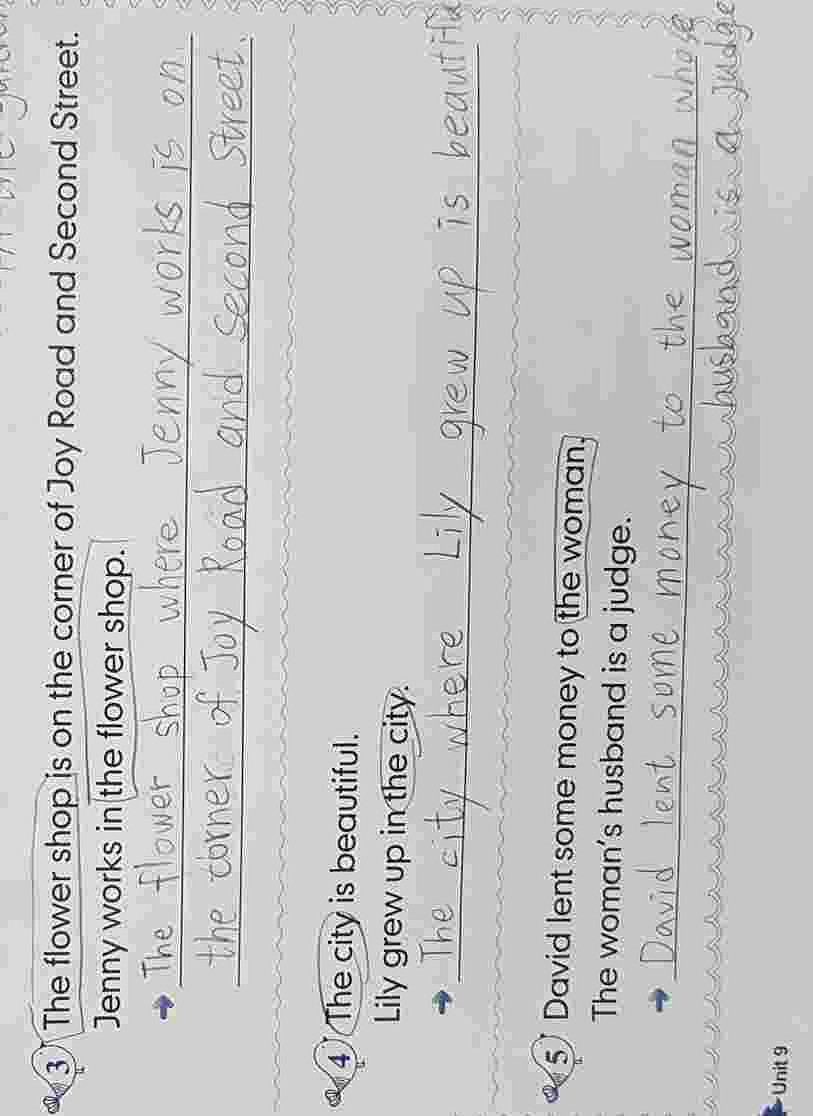 3 The flower shop is on the corner of Joy Road and Second Street.
Jenny works in the flower shop.
→ The flower shop where Jenny works is on
the corner of Joy Road and second street.
4 The city is beautiful.
Lily grew up in the city.
→ The city where Lily grew up is beautiful
5 David lent some money to the woman.
The woman's husband is a judge.
→ David lent some money to the woman whose
husband is a judge
Unit 9